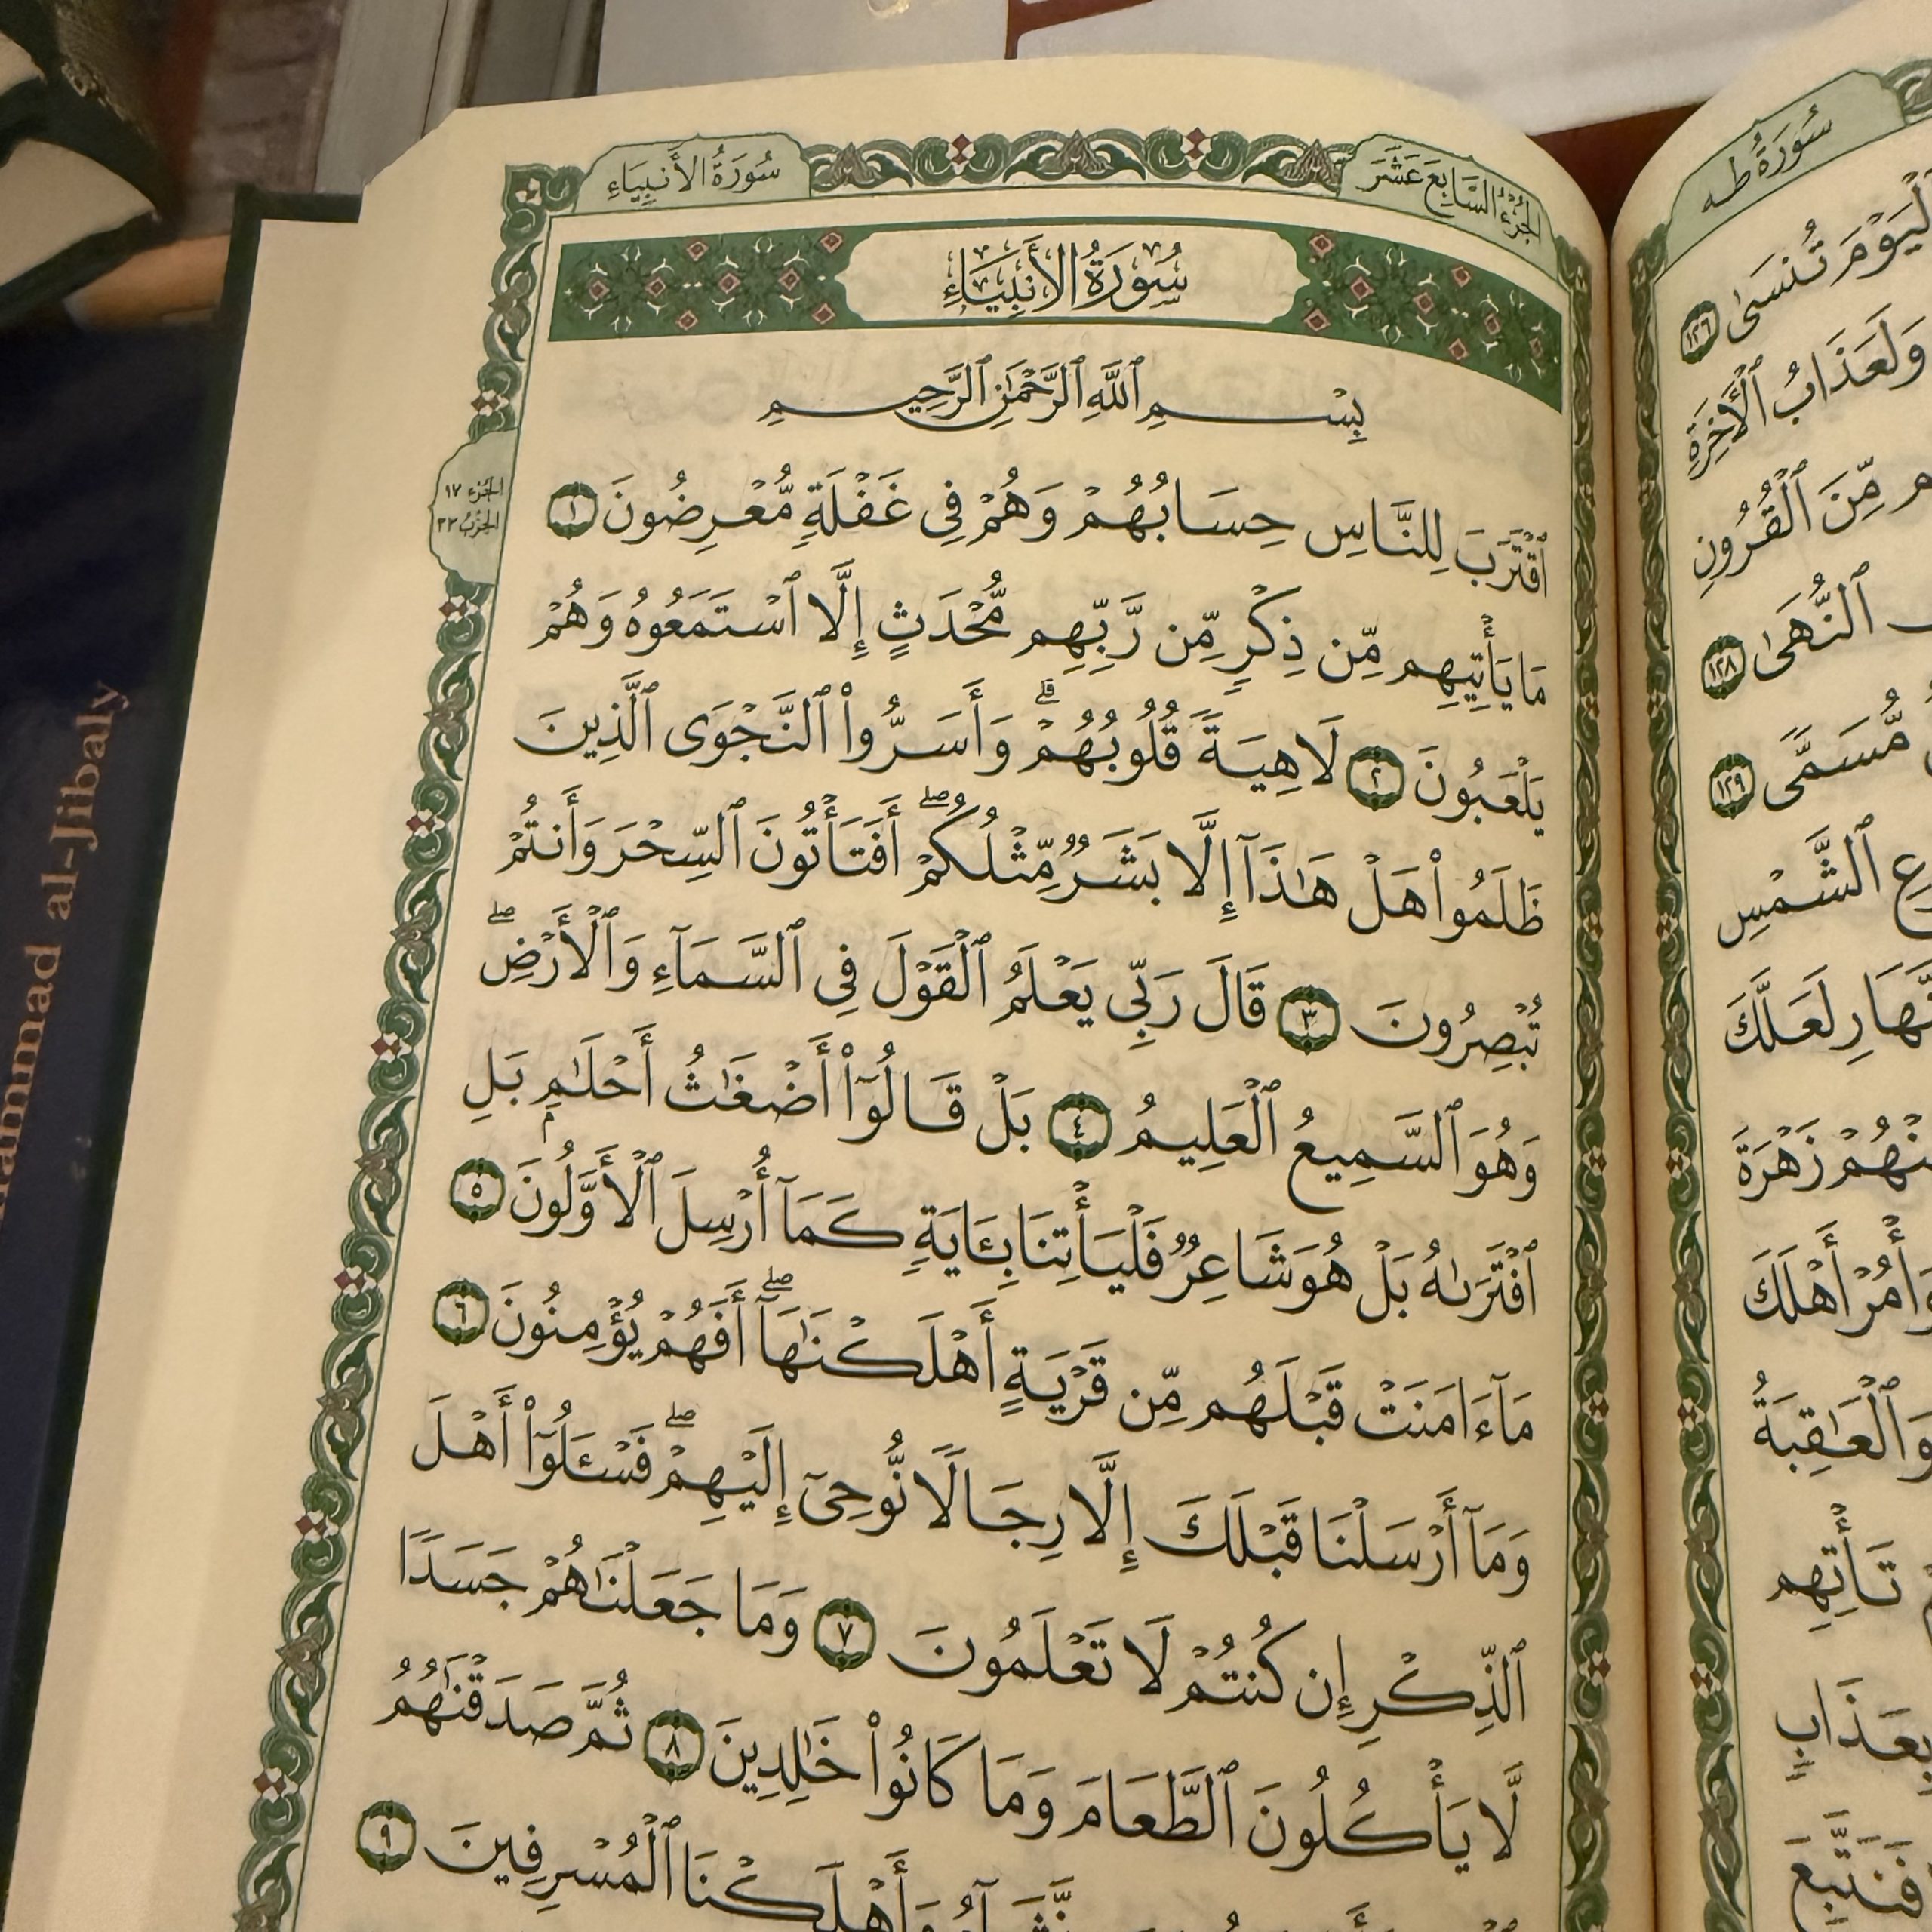 سُورَةُ طه
ٱلْيَوْمَ تُنسَىٰ ١٢٦
وَلَعَذَابُ ٱلْأَخِرَةِ
مِّنَ ٱلْقُرُونِ
ٱلنُّهَىٰ ١٢٨
مُّسَمًّى ١٢٩
ٱلشَّمْسِ
لَعَلَّكَ
زَهْرَةَ
وَأْمُرْ أَهْلَكَ
وَٱلْعَٰقِبَةُ
تَأْتِهِم
بِعَذَابٍ
فَنَتَّبِعَ
الجُزْءُ السَّابِعَ عَشَرَ
سُورَةُ الأَنبِيَاءِ
سُورَةُ الأَنبِيَاءِ
بِسْمِ ٱللَّهِ ٱلرَّحْمَٰنِ ٱلرَّحِيمِ
ٱقْتَرَبَ لِلنَّاسِ حِسَابُهُمْ وَهُمْ فِى غَفْلَةٍ مُّعْرِضُونَ ١
مَا يَأْتِيهِم مِّن ذِكْرٍ مِّن رَّبِّهِم مُّحْدَثٍ إِلَّا ٱسْتَمَعُوهُ وَهُمْ
يَلْعَبُونَ ٢ لَاهِيَةً قُلُوبُهُمْ ۗ وَأَسَرُّوا۟ ٱلنَّجْوَى ٱلَّذِينَ
ظَلَمُوا۟ هَلْ هَٰذَآ إِلَّا بَشَرٌ مِّثْلُكُمْ ۖ أَفَتَأْتُونَ ٱلسِّحْرَ وَأَنتُمْ
تُبْصِرُونَ ٣ قَالَ رَبِّى يَعْلَمُ ٱلْقَوْلَ فِى ٱلسَّمَآءِ وَٱلْأَرْضِ ۖ
وَهُوَ ٱلسَّمِيعُ ٱلْعَلِيمُ ٤ بَلْ قَالُوٓا۟ أَضْغَٰثُ أَحْلَٰمٍۭ بَلِ
ٱفْتَرَىٰهُ بَلْ هُوَ شَاعِرٌ فَلْيَأْتِنَا بِـَٔايَةٍ كَمَآ أُرْسِلَ ٱلْأَوَّلُونَ ٥
مَآ ءَامَنَتْ قَبْلَهُم مِّن قَرْيَةٍ أَهْلَكْنَٰهَآ ۖ أَفَهُمْ يُؤْمِنُونَ ٦
وَمَآ أَرْسَلْنَا قَبْلَكَ إِلَّا رِجَالًا نُّوحِىٓ إِلَيْهِمْ ۖ فَسْـَٔلُوٓا۟ أَهْلَ
ٱلذِّكْرِ إِن كُنتُمْ لَا تَعْلَمُونَ ٧ وَمَا جَعَلْنَٰهُمْ جَسَدًا
لَّا يَأْكُلُونَ ٱلطَّعَامَ وَمَا كَانُوا۟ خَٰلِدِينَ ٨ ثُمَّ صَدَقْنَٰهُمُ
وَأَهْلَكْنَا ٱلْمُسْرِفِينَ ٩
الجُزء ١٧
الحِزْبُ ٣٣
al-Jibaly